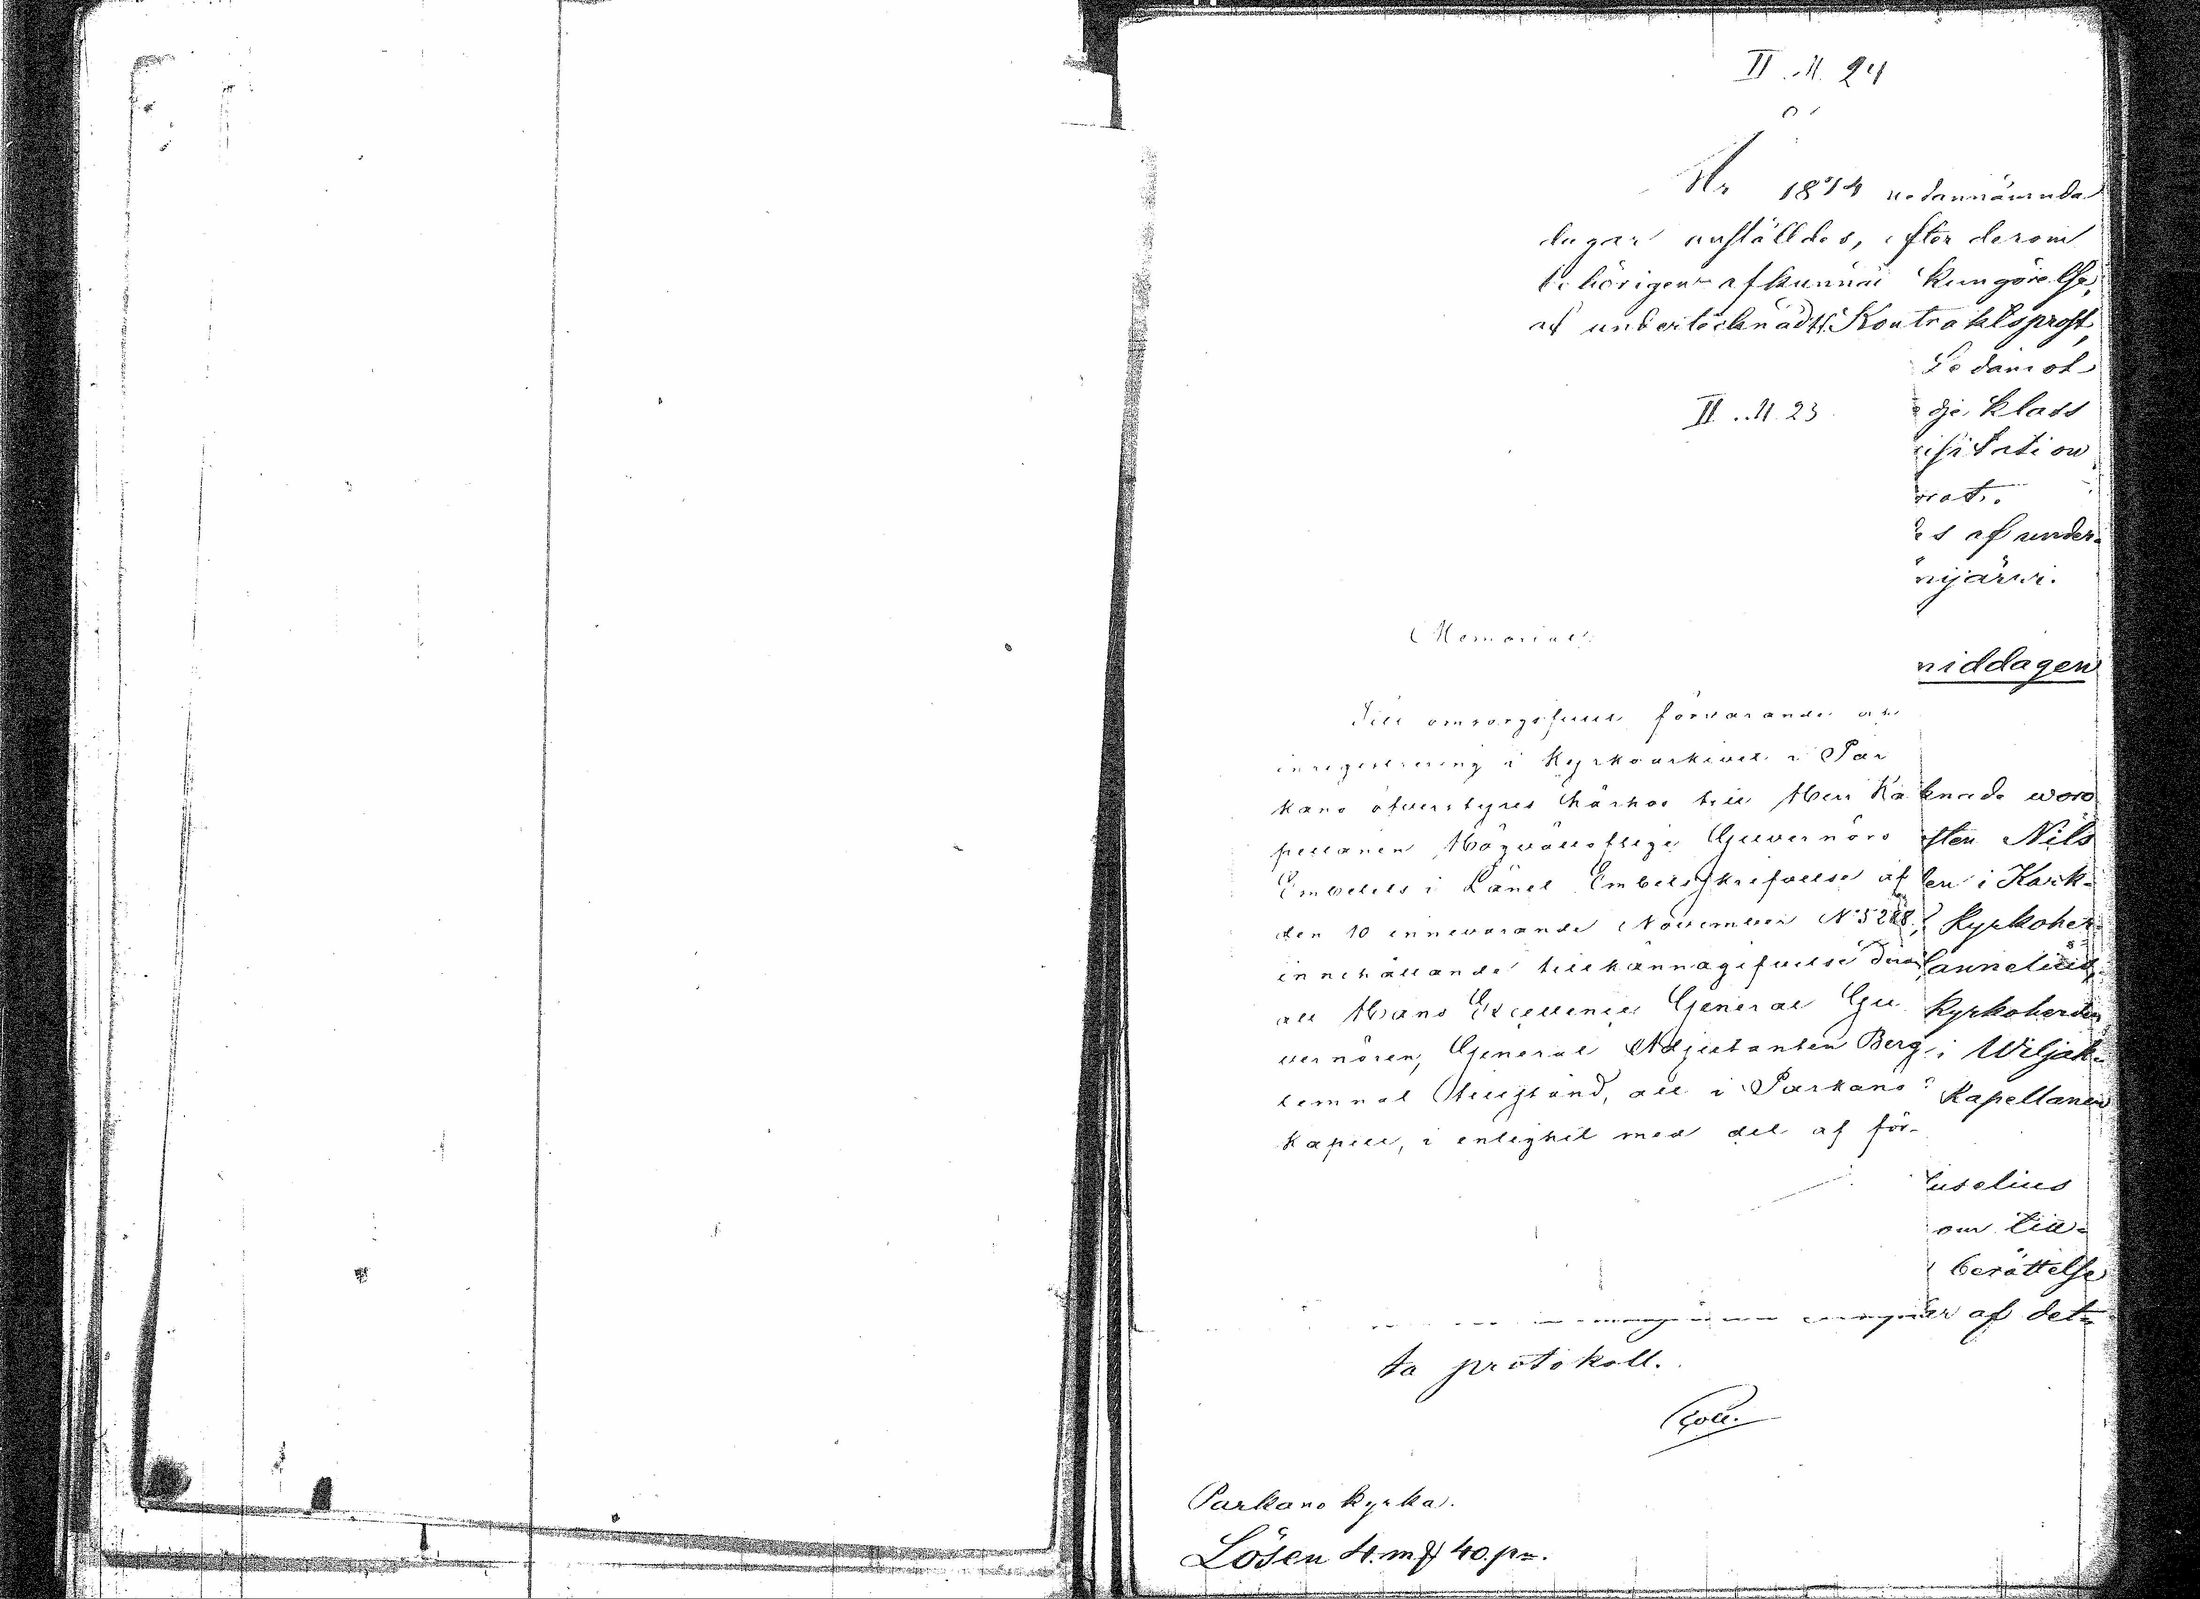 II. M. 24
År 1874 nedannämnda
dagar anställdes, efter derom
behörigen afkunnad kungörelse,
af undertecknadt Kontraktsprost,
Ledamot
dje klass
isitation
orat.
s af under-
nijärvi.
middagen
II. M. 23
Memorial
Till omsorgsfullt förvarande och
inregistrering i Kyrkoarkivet i Par
kano öfverstyres härhos till Herr Ka
pellanen Högvällofliga Guvernörs
Embetets i Länet Embetsskrifvelse af
den 10 innevarande November N:o 5288,
innehållande tillkännagifvelse derom
att Hans Excellence General Gu
vernören, General Adjutanten Berg
lemnat tillstånd, att i Parkano
Kapell, i enlighet med det af för-
knade woro
sten Nils
len i Kark-
Kyrkoher-
lannelius,
Kyrkoherden
i Wiljak-
Kapellanen
uselius
om till-
berättelse
af det-
ta protokoll.
Parkano kyrka.
Lösen 4. mk 40. p:i.